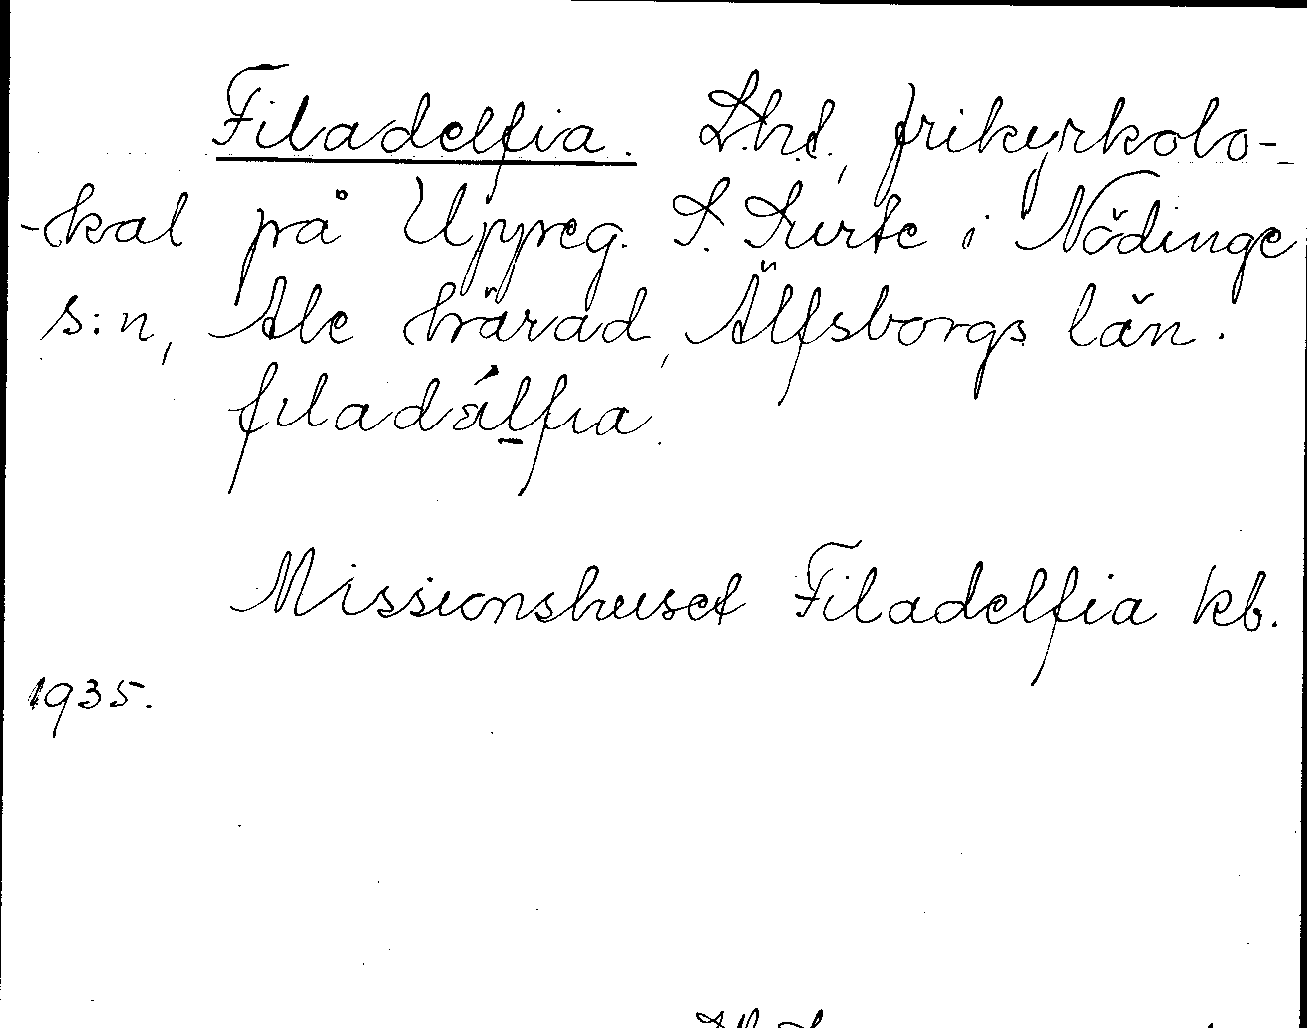 Filadelfia. Lht., frikyrkolo-
-kal på Uppreg. S. Surte i Nödinge
s:n, Ale härad, Älfsborgs län.
filadälfia.
Missionshuset Filadelfia kb.
1935.